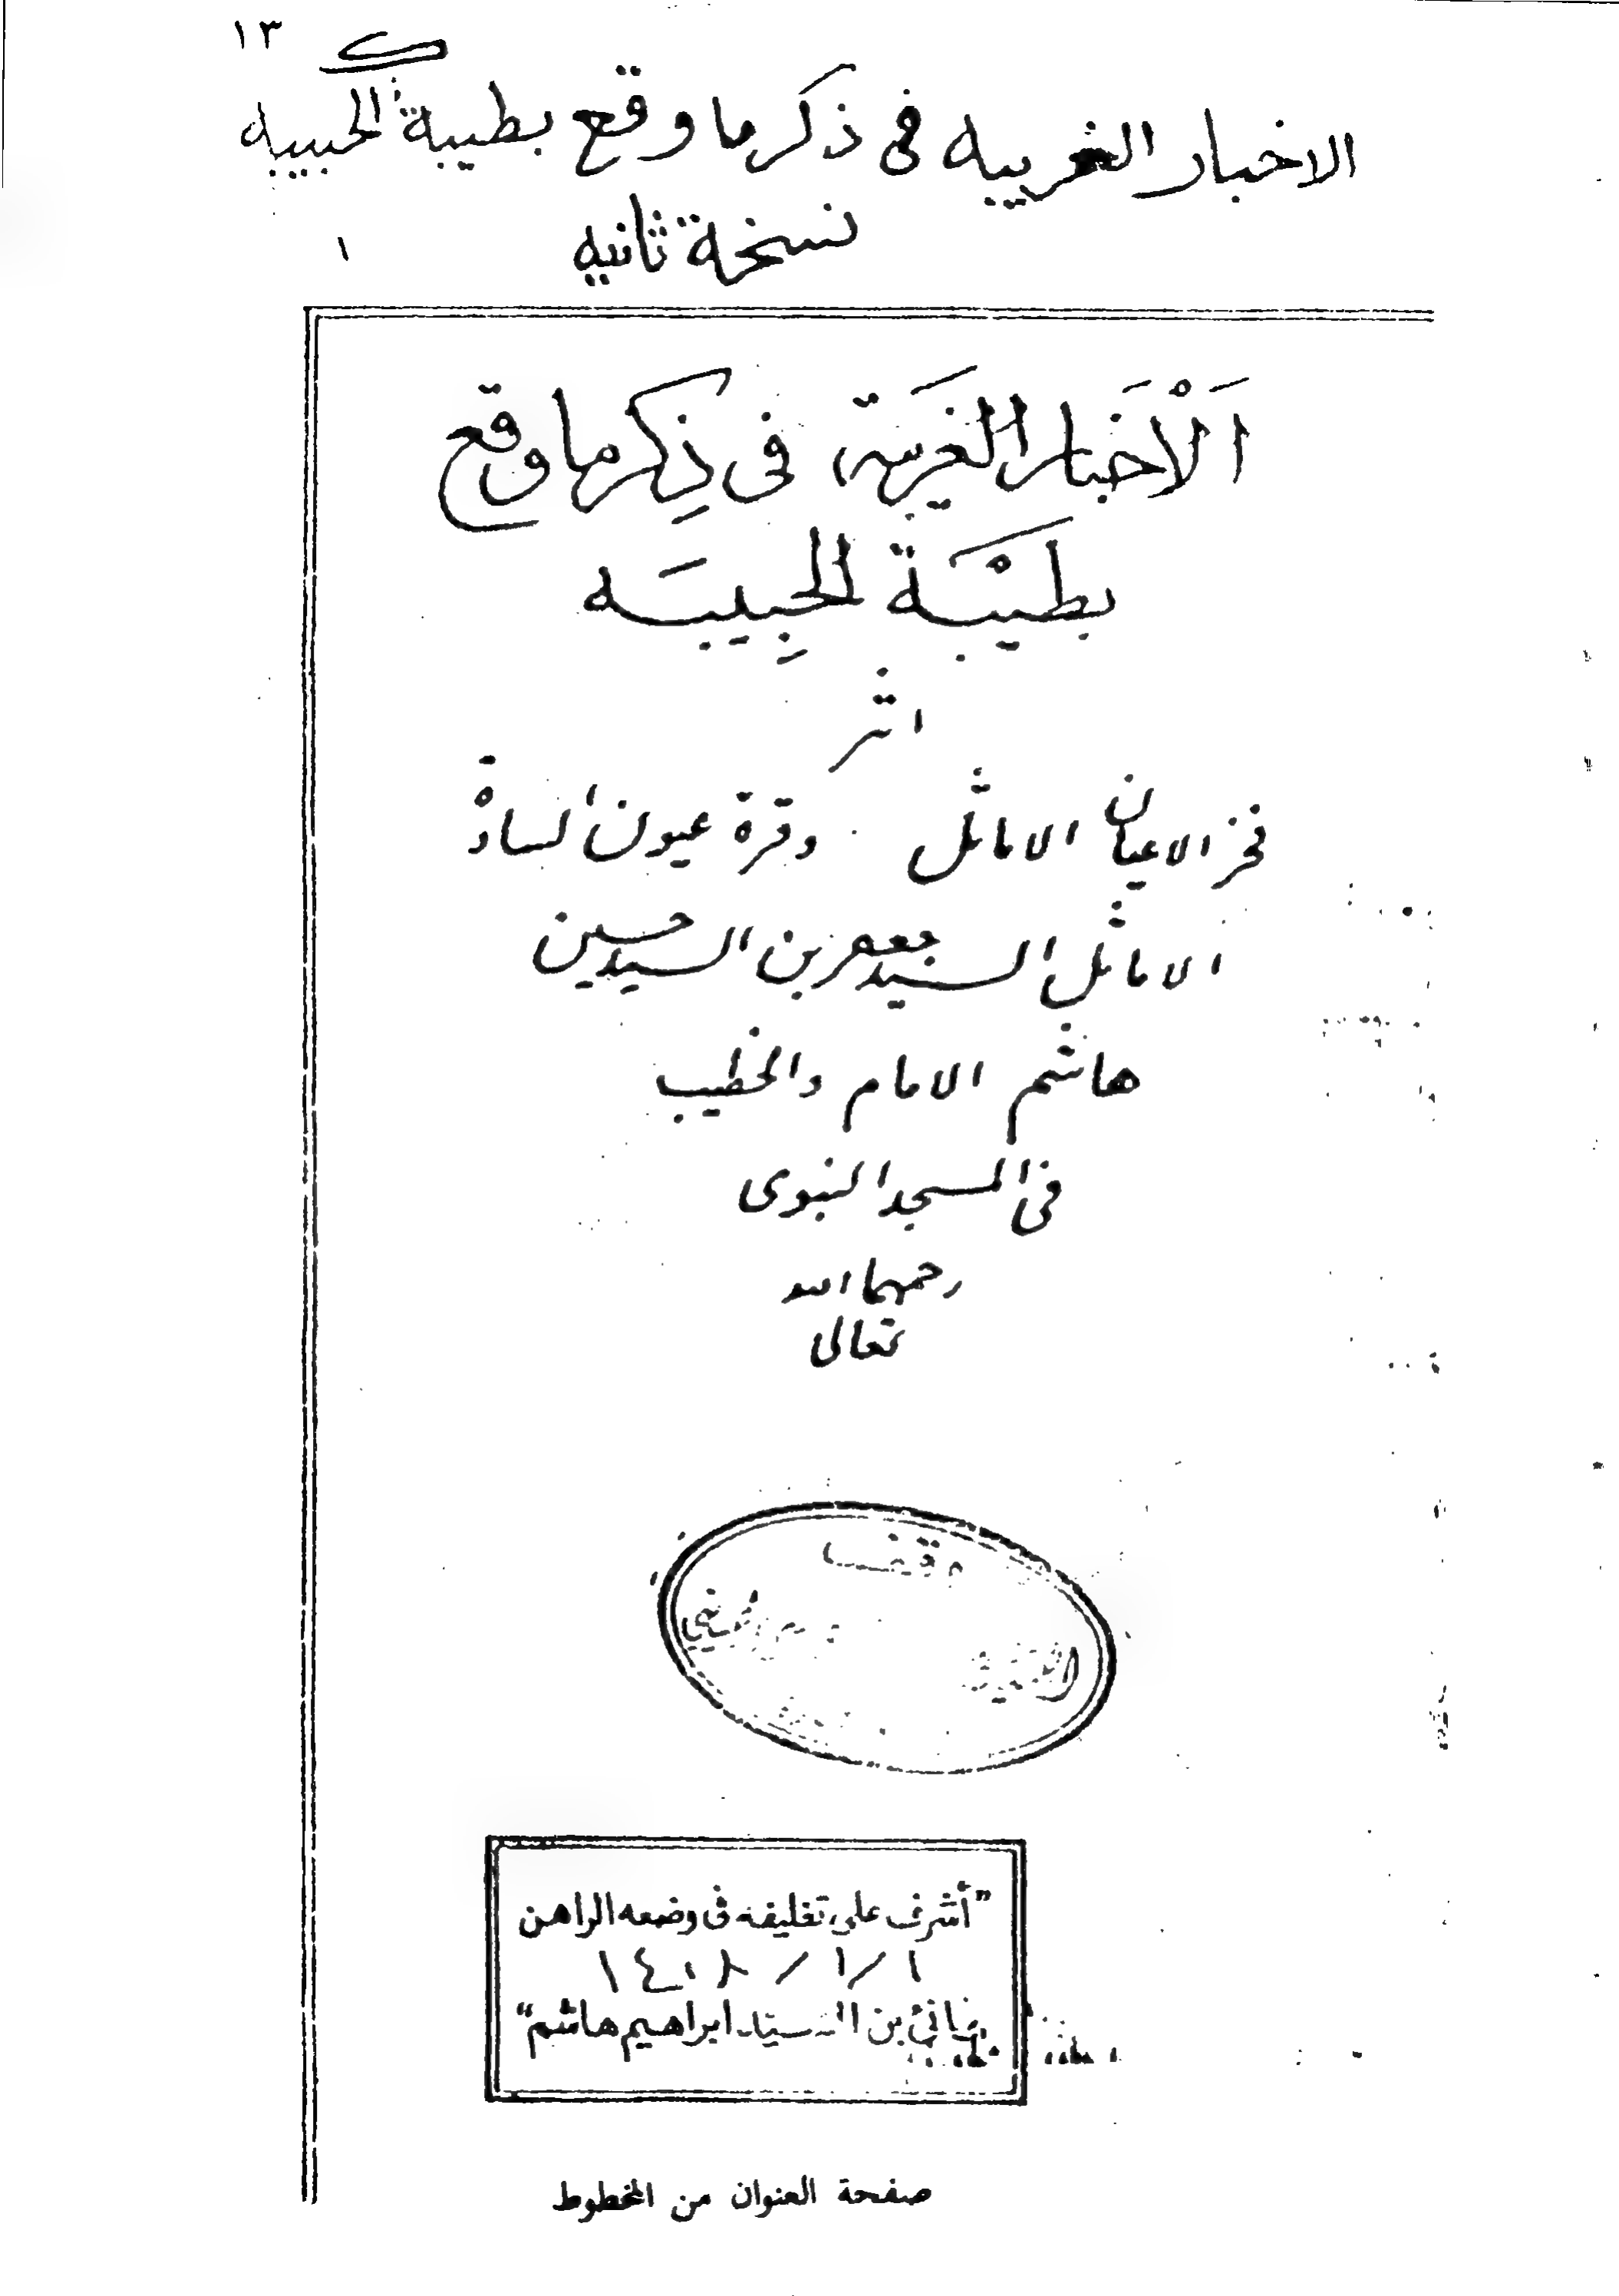 ١٣
الاخبار الغريبه فى ذكر ما وقع بطيبة الحبيبه
نسخة ثانيه
١
اَلْاَخبار الغَريبة فى ذِكر ما وقع
بطَيْبَة الحَبِيبَه
اثر
فخر الاعيان الاماثل وقرة عيون السادة
الاماثل السيد جعفر بن السيد حسين
هاشم الامام والخطيب
فى المسجد النبوى
رحمهما الله
تعالى
وقف
الحسينى
"أشرف على تغليفه فى وضعه الراهن
١ / ١ / ١٤٠٨
هانئ بن السيد ابراهيم هاشم"
صفحة العنوان من المخطوط